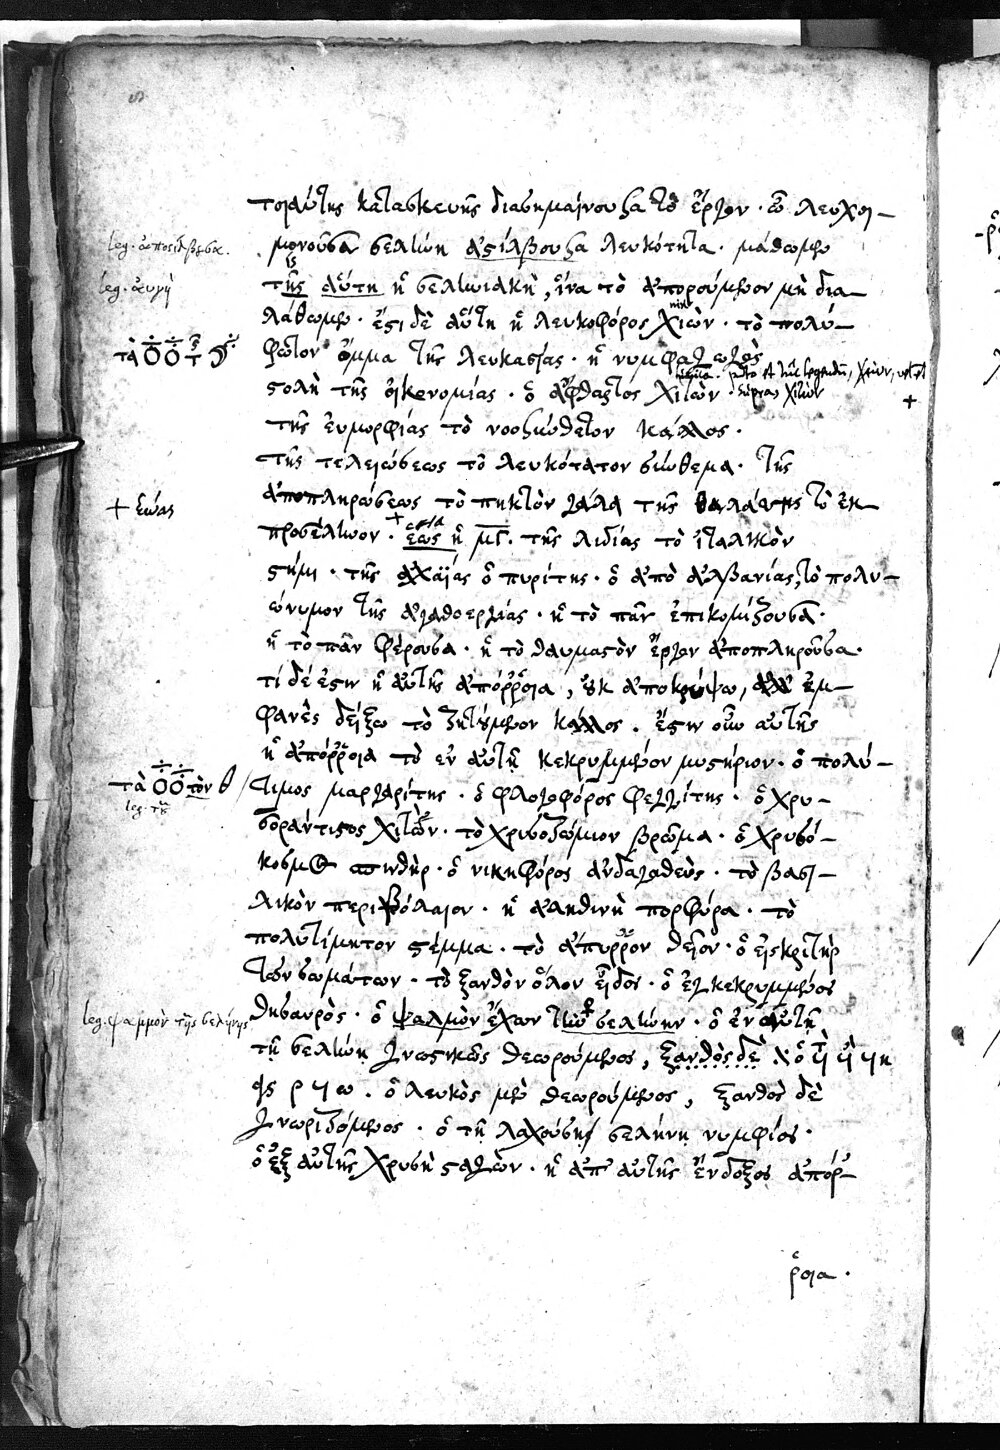 τοιαύτης κατασκευῆς διασημαίνουσα τὸ ἔργον · ὦ λευχοι-
leg. ἀποστίλβουσα.
μονοῦσα σελήνη ἀστίλβουσα λευκότητα · μάθωμεν
leg. αὐγὴ
τίς αὕτη ἡ σεληνιακὴ, ἵνα τὸ ἀπορούμενον μὴ δια-
λάθωμεν · ἔστι δὲ αὕτη ἡ λευκοφόρος χιὼν · τὸ πολύ-
φωτον ὄμμα τῆς λευκασίας · ἡ νυμφα
στολὴ τῆς οἰκονομίας · ὁ ἄφθαρτος χιτὼν
τῆς εὐμορφίας τὸ νοοσύνθετον κάλλος ·
τῆς τελειώσεως τὸ λευκότατον σύνθεμα · τῆς
+ ἑώας
ἀποπληρώσεως τὸ πηκτὸν γάλα τῆς θαλάττης τὸ ἐκ-
ἕως ἡ τῆς λιδίας τὸ ἰταλικὸν
στίμι · τῆς ἀχαΐας ὁ πυρίτης · ὁ ἀπὸ ἀλβανίας, τὸ πολυ-
ώνυμον τῆς ἀγαθοεργίας · ἡ τὸ πᾶν ἐπικομίζουσα ·
ἡ τὸ πᾶν φέρουσα · ἡ τὸ θαυμαστὸν ἔργον ἀποπληροῦσα ·
τί δέ ἐστιν ἡ αὐτῆς ἀπόρροια, οὐκ ἀποκρύψω, ἀλλ' ἐμ-
φανὲς δείξω τὸ ζητούμενον κάλλος . ἔστιν οὖν αὐτῆς
ἡ ἀπόρροια τὸ ἐν αὐτῇ κεκρυμμένον μυστήριον · ὁ πολύ-
τιμος μαργαρίτης · ὁ φλογοφόρος φεγγίτης · ὁ χρυ-
σοράντιστος χιτὼν · τὸ χρυσοζώμιον βρῶμα · ὁ χρυσό-
κοσμος σπινθὴρ · ὁ νικηφόρος ἀνδαγαθεὺς · τὸ βασι-
λικὸν περιβόλαιον · ἡ ἀληθινὴ πορφύρα · τὸ
πολυτίμητον στέμμα · τὸ ἄπυρρον θεῖον · ὁ εἰσκριτὴρ
τῶν σωμάτων · τὸ ξανθὸν ὅλον εἶδος · ὁ ἐγκεκρυμμένος
leg. ψαμμὸν τῆς σελήνης
θησαυρὸς · ὁ ψαλμὸν ἔχων τὴν σελήνην · ὁ ἐν αὐτῇ
τῇ σελήνῃ γνωστικῶς θεωρούμενος, ξανθὸς δὲ
ὁ λευκὸς μὲν θεωρούμενος, ξανθὸς δὲ
γνωριζόμενος · ὁ τῇ λαχούσῃ σελήνῃ νυμφίος ·
ὁ ἐξ αὐτῆς χρυσὴ σταγὼν · ἡ ἀπ' αὐτῆς ἔνδοξος ἀπόρ-
ροια ·